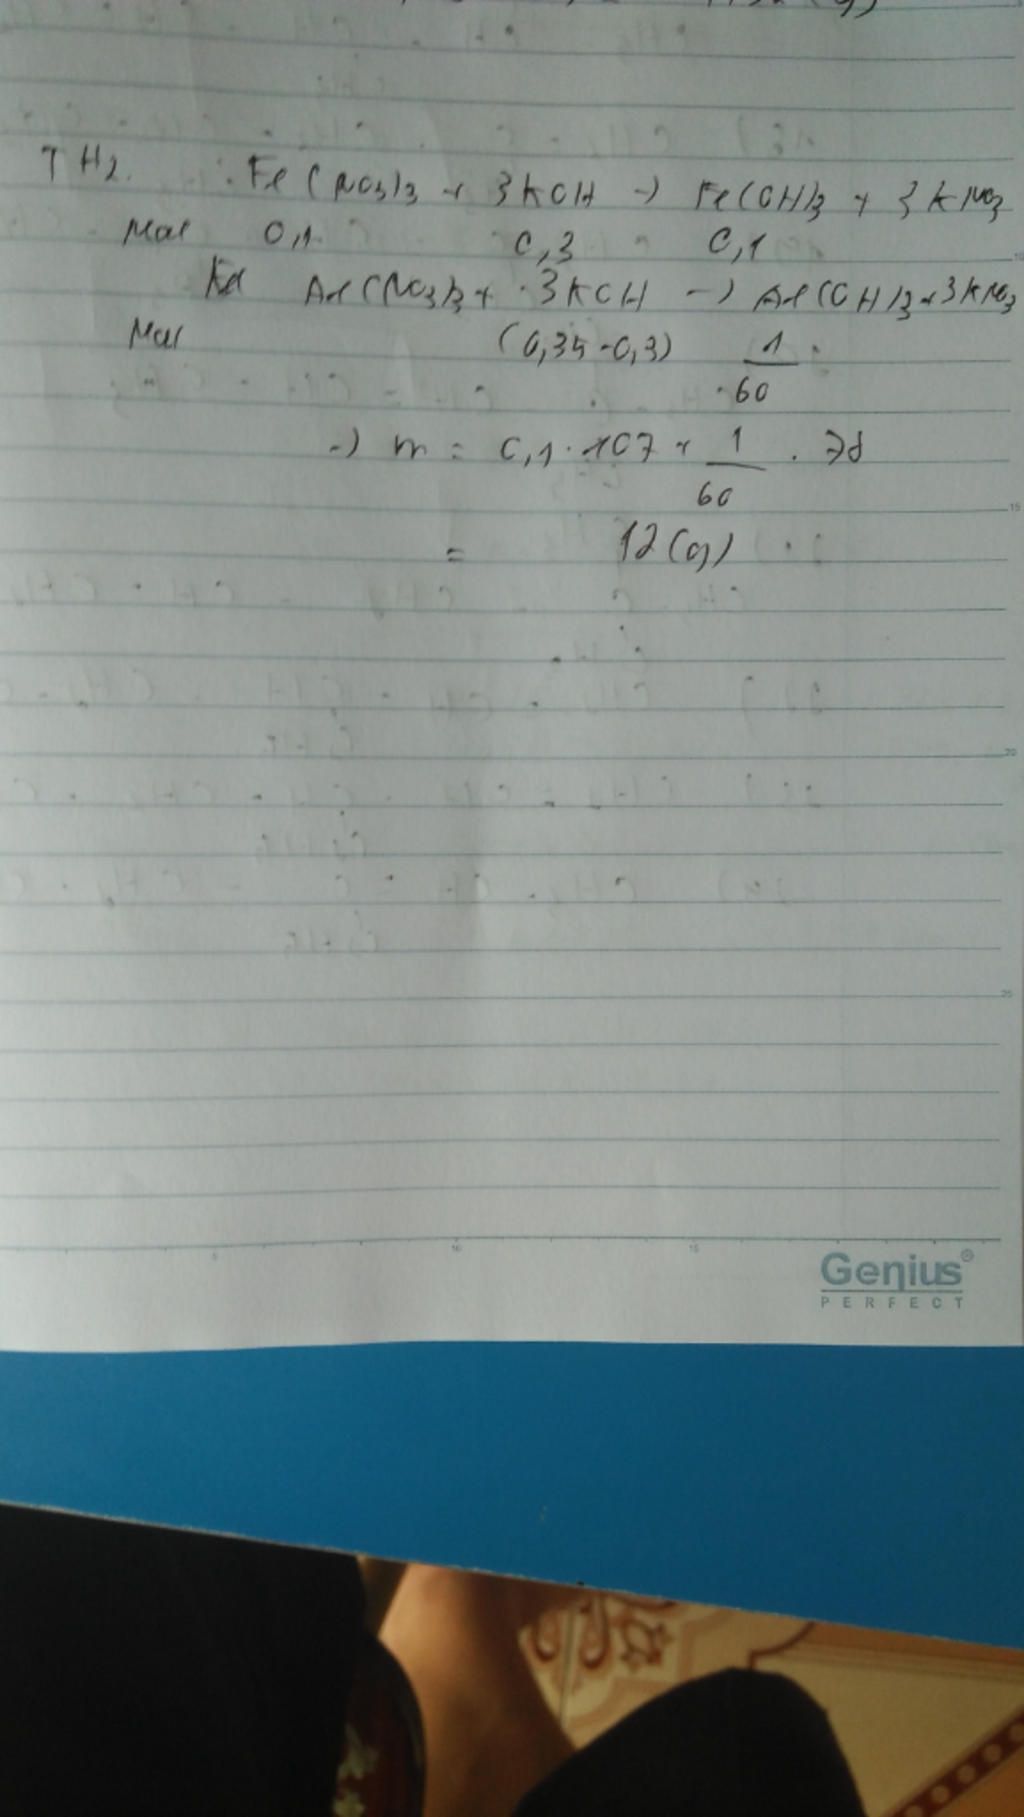 TH2. : Fe(NO3)3 + 3KOH -> Fe(OH)3 + 3KNO3
Mol 0,1 0,3 0,1
Al(NO3)3 + 3KOH -> Al(OH)3 + 3KNO3
Mol (0,35-0,3) 1/60
-> m = 0,1.107 + 1/60 . 78
= 12(g)
15
20
25
5 10 15
Genius®
PERFECT